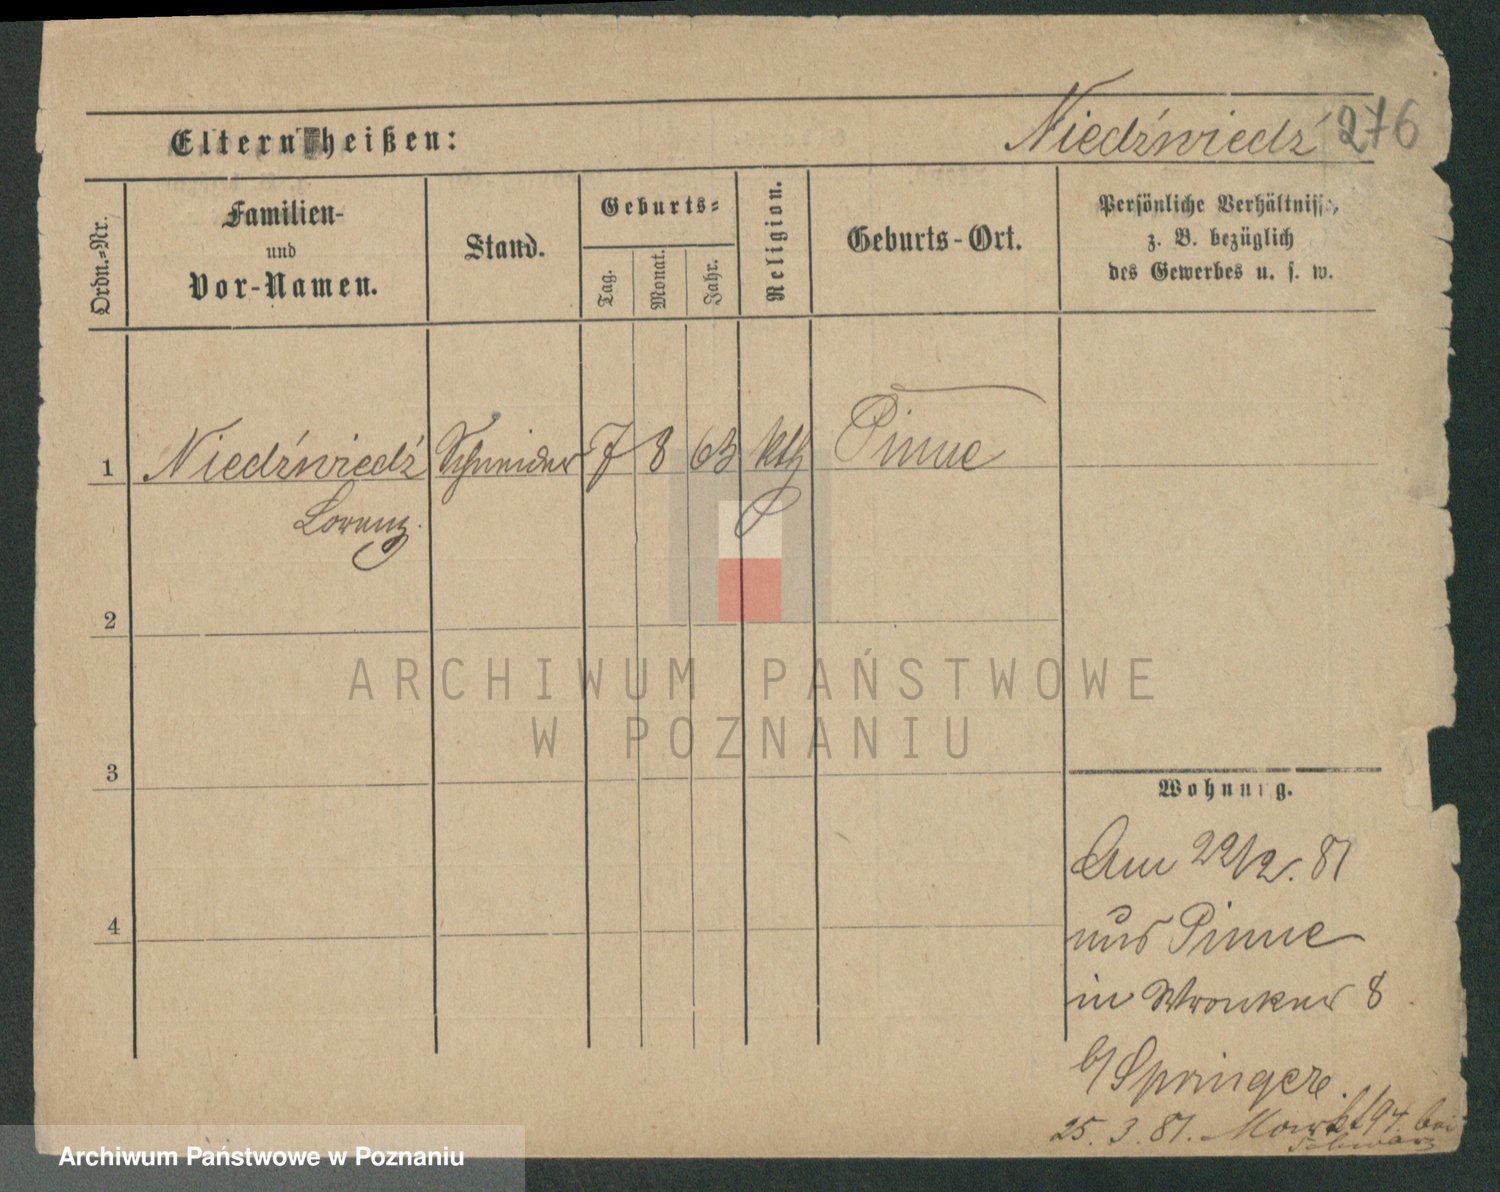 Niedźwiedź 276
Eltern heißen:
Ordn.-Nr.
Familien-
und
Vor-Namen.
Stand.
Geburts-
Tag.
Monat.
Jahr.
Religion.
Geburts-Ort.
Persönliche Verhältnisse,
z. B. bezüglich
des Gewerbes u. s. w.
1 Niedźwiedź Schneider 7 8 63 kth Pinne
Lorenz.
2
3
4
ARCHIWUM PAŃSTWOWE
W POZNANIU
Wohnung.
Am 22/2. 81
aus Pinne
in Wronker 8
b/ Springer.
25. 3. 81. Markt 94. bei
Schwarz
Archiwum Państwowe w Poznaniu